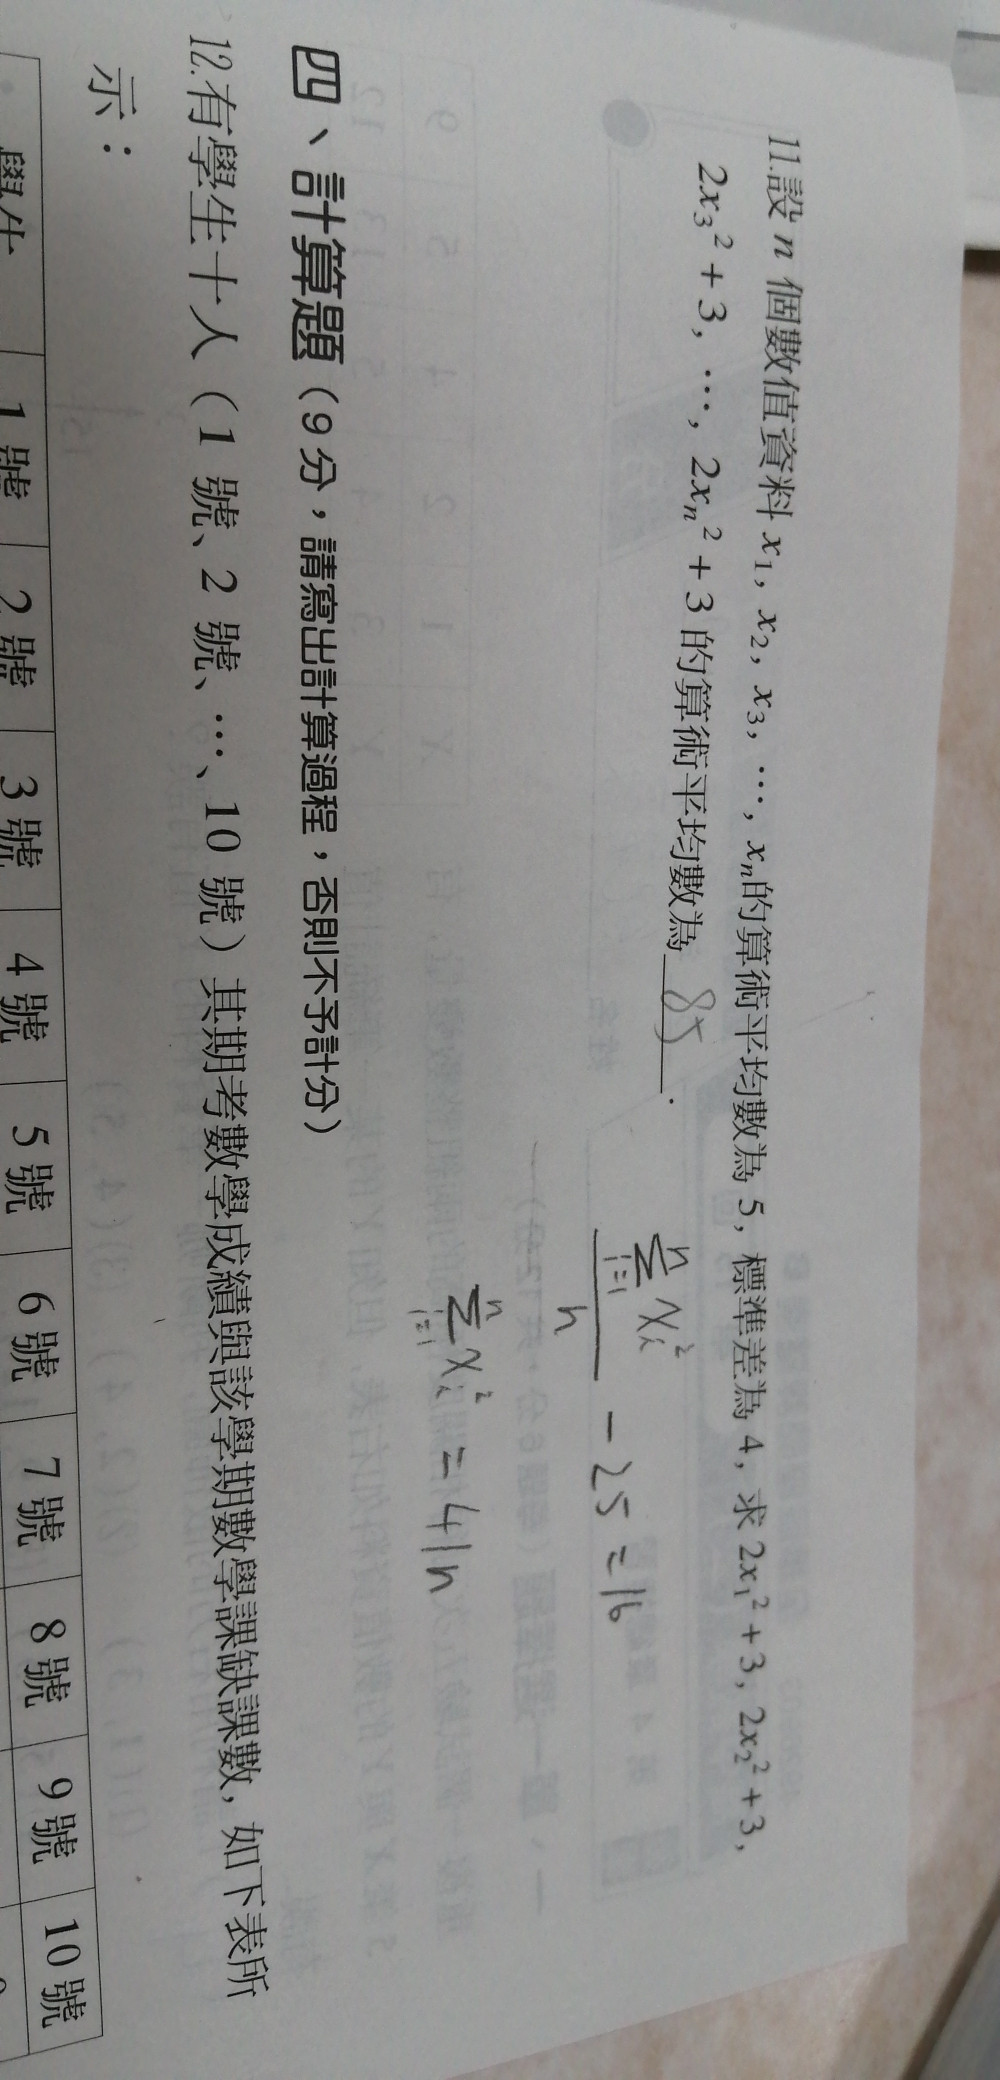 11.設 n 個數值資料 x₁, x₂, x₃, …, xₙ的算術平均數為 5, 標準差為 4, 求 2x₁²+3, 2x₂²+3,
2x₃²+3, …, 2xₙ²+3 的算術平均數為 85 .
n
Σ xᵢ²
i=1
n
- 25 = 16
n
Σ xᵢ² = 41n
i=1
四、計算題（9 分，請寫出計算過程，否則不予計分）
12.有學生十人（1 號、2 號、…、10 號）其期考數學成績與該學期數學課缺課數, 如下表所
示：
學生 1 號 2 號 3 號 4 號 5 號 6 號 7 號 8 號 9 號 10 號